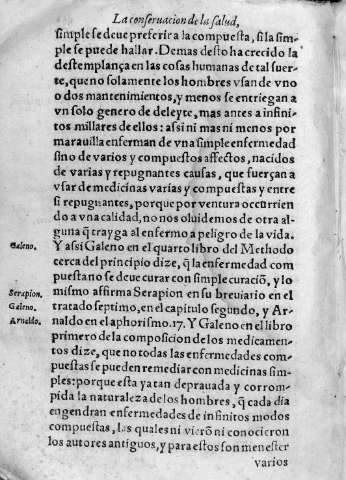 La conseruacion de la salud,
simple se deue preferir a la compuesta, si la sim-
ple se puede hallar. Demas desto ha crecido la
destemplança en las cosas humanas de tal suer-
te, que no solamente los hombres vsan de vno
o dos mantenimientos, y menos se entriegan a
vn solo genero de deleyte, mas antes a infini-
tos millares de ellos: assi ni mas ni menos por
marauilla enferman de vna simple enfermedad
sino de varios y compuestos affectos, nacidos
de varias y repugnantes causas, que fuerçan a
vsar de medicinas varias y compuestas y entre
si repugnantes, porque por ventura occurrien
do a vna calidad, no nos oluidemos de otra al-
guna q̃ trayga al enfermo a peligro de la vida.
Galeno. Y assi Galeno en el quarto libro del Methodo
cerca del principio dize, q̃ la enfermedad com
puesta no se deue curar con simple curaciõ, y lo
Serapion. mismo affirma Serapion en su breuiario en el
Galeno. tratado septimo, en el capitulo segundo, y Ar-
Arnaldo. naldo en el aphorismo. 17. Y Galeno en el libro
primero de la composicion de los medicamen-
tos dize, que no todas las enfermedades com-
puestas se pueden remediar con medicinas sim-
ples: porque esta ya tan deprauada y corrom-
pida la naturaleza de los hombres, q̃ cada dia
engendran enfermedades de infinitos modos
compuestas, las quales ni vierõ ni conocieron
los autores antiguos, y para estos son menester
varios